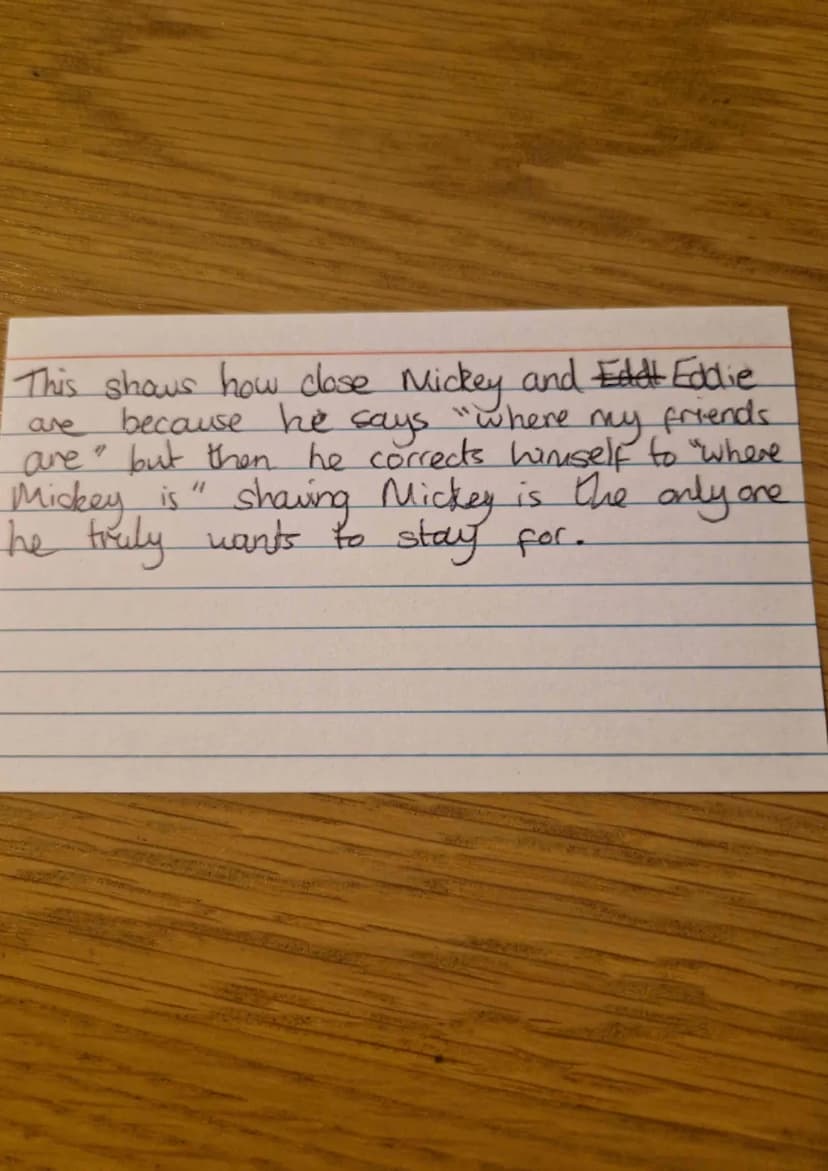 This shows how close Mickey and Eddt Eddie
are because he says "where my friends
are" but then he corrects himself to "where
Mickey is" showing Mickey is the only one
he truly wants to stay for.